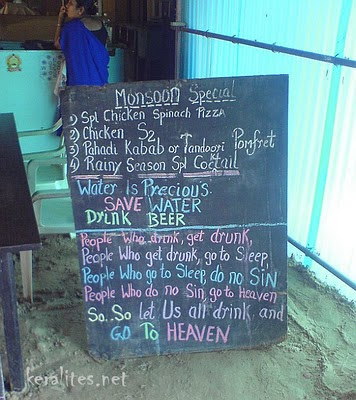 Monsoon Special
1) Spl Chicken Spinach Pizza
2) Chicken S2
3) Pahadi Kabab or Tandoori Pomfret
4) Rainy Season Spl Cocktail
Water Is Precious.
SAVE WATER
DRINK BEER
People Who drink, get drunk,
People Who get drunk, go to Sleep,
People Who go to Sleep, do no SIN
People Who do no Sin, go to Heaven
So.So let Us all drink and
GO To HEAVEN
keralites.net